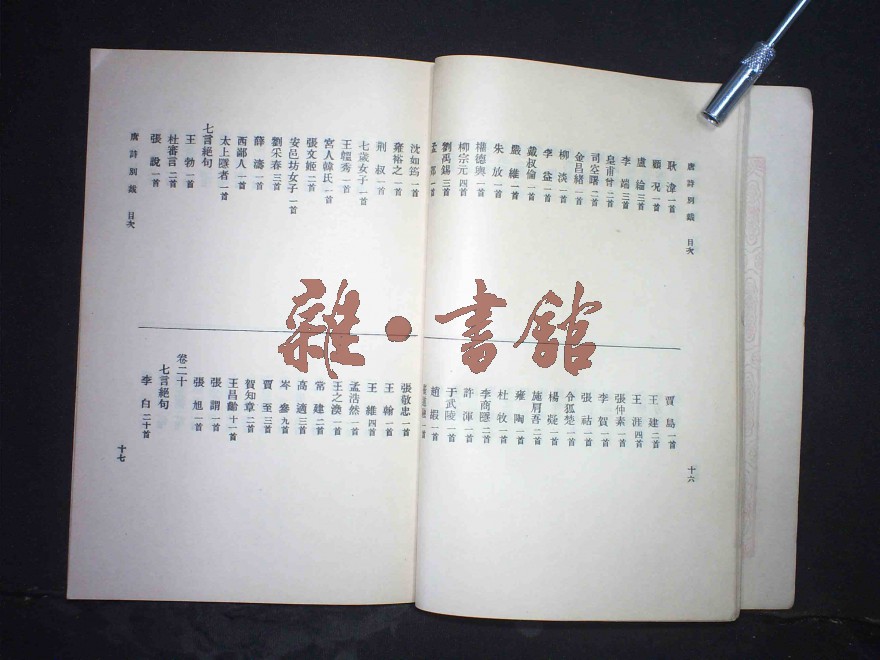 唐詩別裁 目次
耿湋一首
顧况一首
盧綸三首
李端三首
皇甫曾二首
司空曙二首
金昌緒一首
柳淡一首
李益一首
戴叔倫一首
嚴維一首
朱放一首
權德輿一首
柳宗元四首
劉禹錫三首
孟郊一首
賈島一首
王建二首
王涯四首
張仲素一首
李賀一首
張祜一首
令狐楚一首
楊凝一首
施肩吾二首
雍陶一首
杜牧一首
李商隱二首
許渾一首
于武陵一首
趙嘏一首
十六
沈如筠一首
雍裕之一首
荆叔一首
七歲女子一首
王韞秀一首
宮人韓氏一首
張文姬二首
安邑坊女子一首
劉采春三首
薛濤一首
西鄙人一首
太上隱者一首
七言絕句
王勃一首
杜審言二首
張說一首
唐詩別裁 目次
張敬忠一首
王翰一首
王維四首
孟浩然一首
王之渙一首
常建二首
高適三首
岑參九首
賈至三首
賀知章二首
王昌齡十一首
張謂一首
張旭一首
卷二十
七言絕句
李白二十首
十七
雜·書館